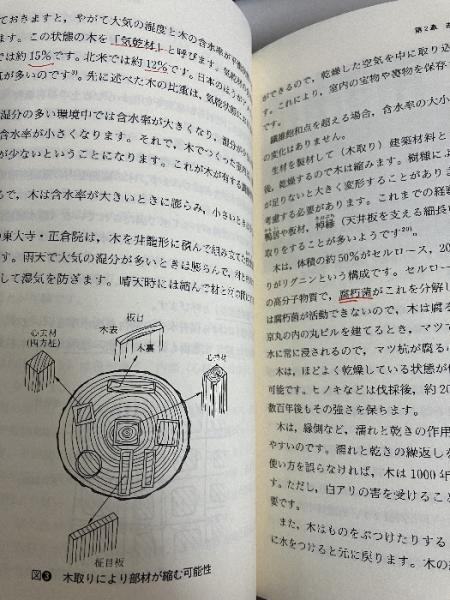 ておきますと、やがて大気の湿度と木の含水率が平衡
ます。この状態の木を「気乾材」と呼びます。気乾材の
では約15%です。北米では約12%です。日本のほうが
気が多いのです。先に述べた木の比重は、気乾状態に
湿分の多い環境中では含水率が大きくなり、部分が
含水率が小さくなります。それで、木でつくった
が少ないということになります。これが木が有する調
るで、木は含水率が大きいときに膨らみ、小さいとき
の東大寺・正倉院は、木を井籠形に積んで組み立てた
す。雨天で大気の湿分が多いときは膨らんで、材と
して湿気を防ぎます。晴天時には縮んで材と材の間に
心去材
(四方柾)
板目
木表
木裏
心去材
柾目板
図❸ 木取りにより部材が縮む可能性
第2章
ができるので、乾燥した空気を中に取り込
す。これにより、室内の宝物や書物を保存
です。
繊維飽和点を超える場合、含水率の大小
の変化はありません。
生材を製材して(木取り)建築材料と
後、乾燥するので木は縮みます。樹種によ
が足りないと大きく変形することがあり
考慮する必要があります。これまでの経
鴨居や板材、竿縁(天井板を支える細長い
取りをすることが多いようです20)。
木は、体積の約50%がセルロース、20
りがリグニンという構成です。セルロー
の高分子物質で、腐朽菌がこれを分解し
は腐朽菌が活動できないので、木は腐
京丸の内の丸ビルを建てるとき、マツ
水に常に浸されるので、マツ杭が腐る
木は、ほどよく乾燥している状態が
可能です。ヒノキなどは伐採後、約20
数百年後もその強さを保ちます。
木は、縁側など、濡れと乾きの作用
やすいのです。濡れと乾きの繰返し
使い方を誤らなければ、木は1000年
す。ただし、白アリの害を受けること
要です。
また、木はものをぶつけたりする
に水をつけると元に戻ります。木の